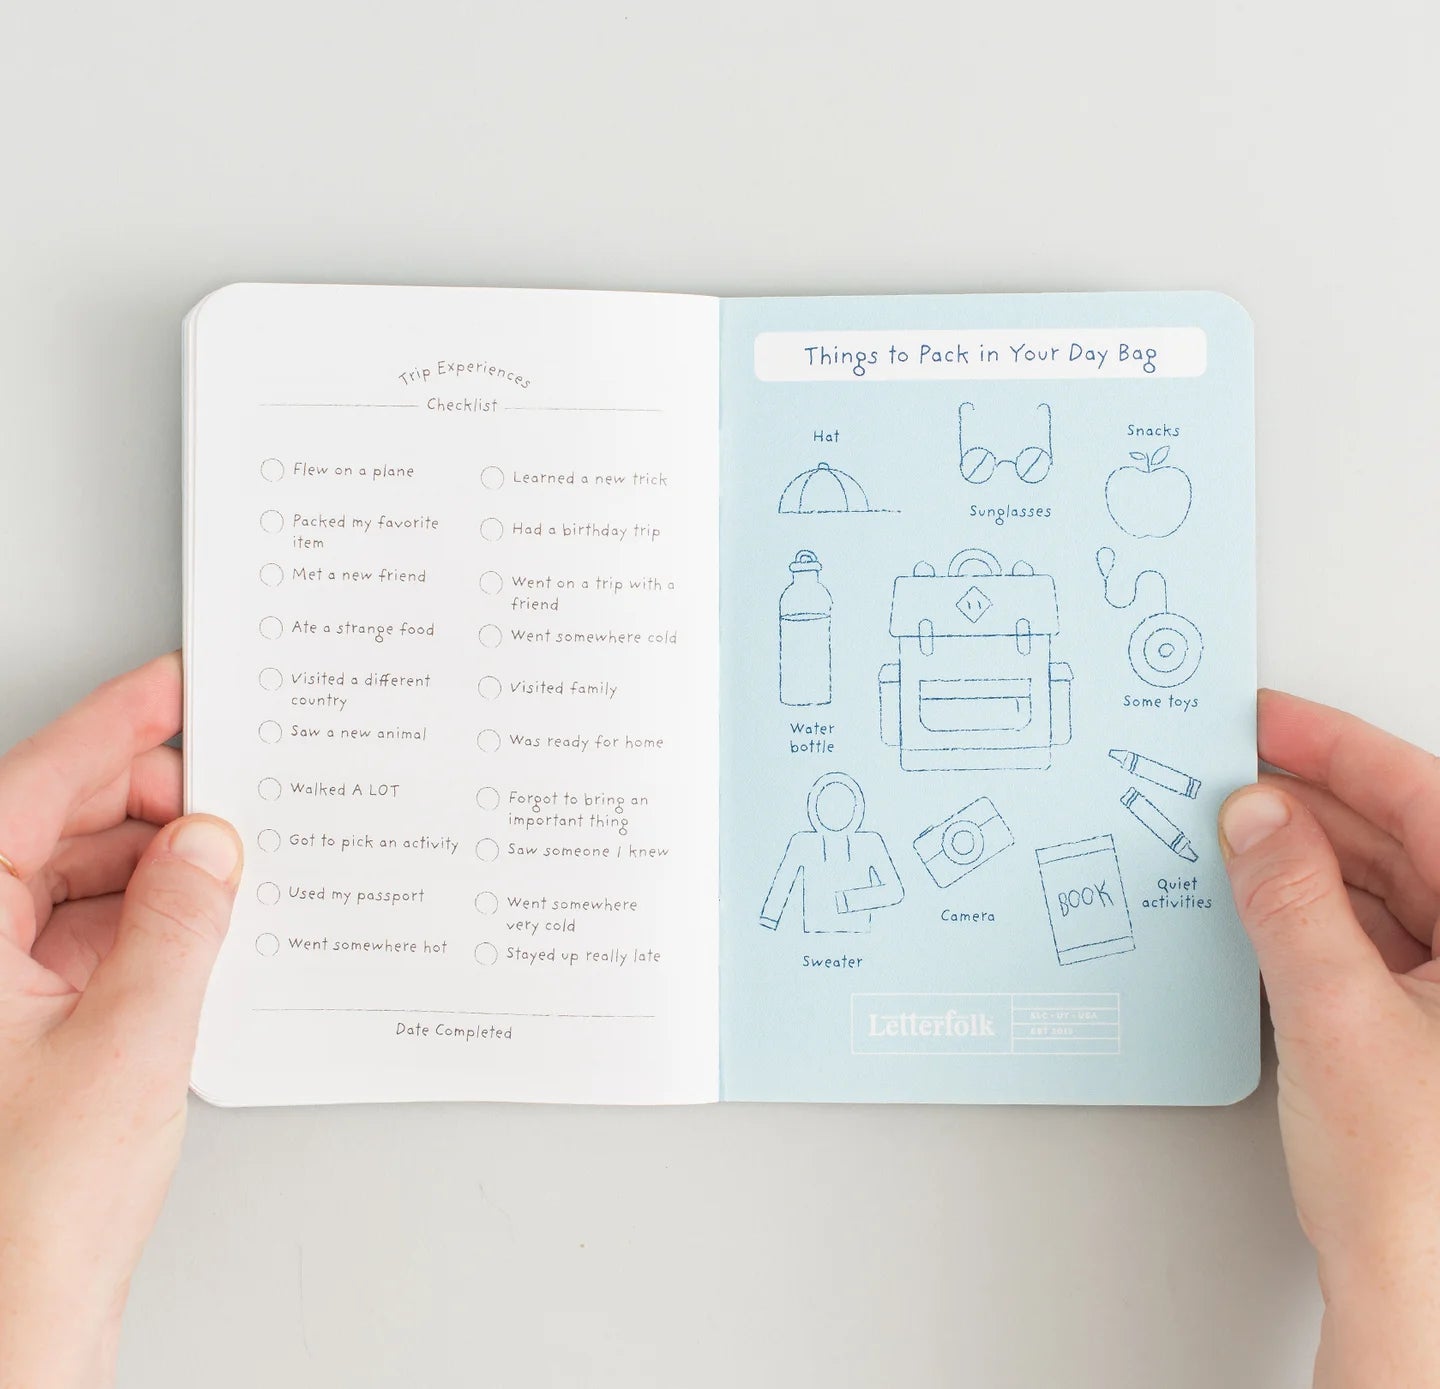 Trip Experiences
Checklist
Flew on a plane
Packed my favorite
item
Met a new friend
Ate a strange food
Visited a different
country
Saw a new animal
Walked A LOT
Got to pick an activity
Used my passport
Went somewhere hot
Learned a new trick
Had a birthday trip
Went on a trip with a
friend
Went somewhere cold
Visited family
Was ready for home
Forgot to bring an
important thing
Saw someone I knew
Went somewhere
very cold
Stayed up really late
Date Completed
Things to Pack in Your Day Bag
Hat
Sunglasses
Snacks
Water
bottle
Some toys
Sweater
Camera
BOOK
Quiet
activities
Letterfolk
SLC • UT • USA